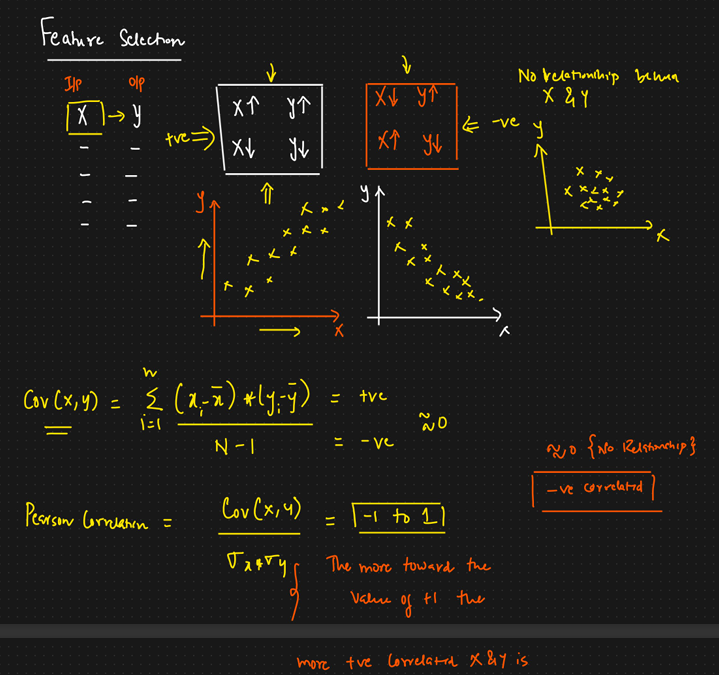 Feature Selection
I/p O/p
X → y
+ve ⇒
X↑ y↑
X↓ y↓
X↓ y↑
X↑ y↓
⇐ -ve
No relationship between
X & y
y
x
y
x
y
x
Cov(x,y) = Σ i=1 n (xᵢ-x̄)*(yᵢ-ȳ) / N-1 = +ve
= -ve
≈0
≈0 {No Relationship}
-ve correlated
Pearson Correlation = Cov(x,y) / σx*σy = -1 to 1
The more toward the
value of +1 the
more +ve correlated X & Y is